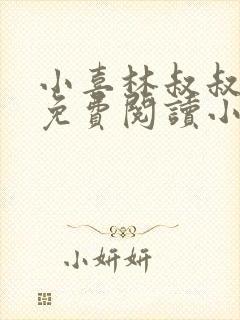 小喜林叔叔
免費閱讀小
小妍妍